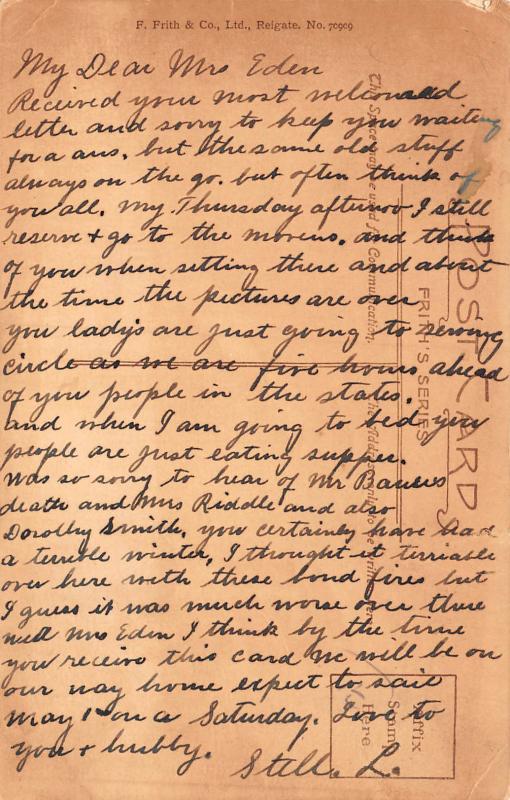 F. Frith & Co., Ltd., Reigate. No. 70909
My Dear Mrs Eden
Received your most welcomed
letter and sorry to keep you waiting
for a ans. but the same old stuff
always on the go. but often think of
you all. My Thursday afternov I still
reserve + go to the movens. and think
of you when setting there and about
the time the pictures are over
you lady's are just going to sewing
circle as we are five hours ahead
of you people in the states.
and when I am going to bed you
people are just eating supper.
Was so sorry to hear of Mr
death and Mrs Riddle and also
Dorothy Smith, you certainly have had
a terrible winter, I thought it terriable
over here with these bond fires but
I guess it was much worse over there
well Mrs Eden I think by the time
you receive this card we will be on
our way home expect to sail
May 1st on a Saturday. Love to
you + hubby.
Still. L.
POST CARD
FRITH'S SERIES
This Space may be used for Communication.
The Address only to be Written here
Affix
Stamp
Here